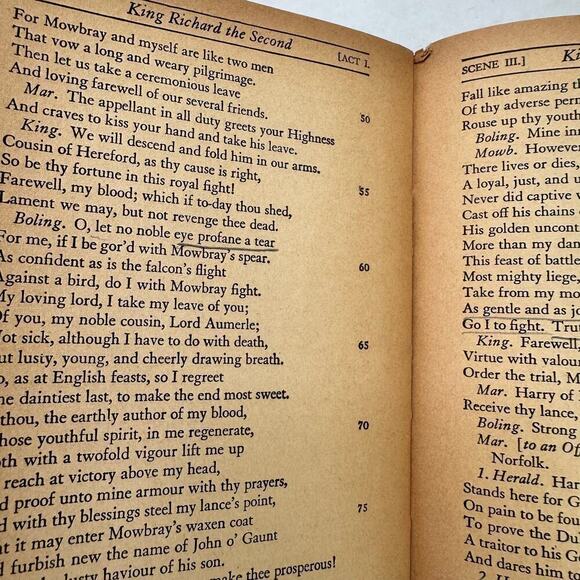 King Richard the Second
[ACT I.
For Mowbray and myself are like two men
That vow a long and weary pilgrimage.
Then let us take a ceremonious leave
And loving farewell of our several friends.
Mar. The appellant in all duty greets your Highness 50
And craves to kiss your hand and take his leave.
King. We will descend and fold him in our arms.
Cousin of Hereford, as thy cause is right,
So be thy fortune in this royal fight!
Farewell, my blood; which if to-day thou shed, 55
Lament we may, but not revenge thee dead.
Boling. O, let no noble eye profane a tear
For me, if I be gor'd with Mowbray's spear.
As confident as is the falcon's flight 60
Against a bird, do I with Mowbray fight.
My loving lord, I take my leave of you;
Of you, my noble cousin, Lord Aumerle;
Not sick, although I have to do with death, 65
But lusty, young, and cheerly drawing breath.
, as at English feasts, so I regreet
e daintiest last, to make the end most sweet.
thou, the earthly author of my blood, 70
hose youthful spirit, in me regenerate,
oth with a twofold vigour lift me up
reach at victory above my head,
d proof unto mine armour with thy prayers,
d with thy blessings steel my lance's point, 75
t it may enter Mowbray's waxen coat
d furbish new the name of John o' Gaunt
lusty haviour of his son.
make thee prosperous!
SCENE III.]
Ki
Fall like amazing th
Of thy adverse pern
Rouse up thy youth
Boling. Mine in
Mowb. However
There lives or dies,
A loyal, just, and u
Never did captive w
Cast off his chains
His golden uncont
More than my dan
This feast of battle
Most mighty liege,
Take from my mo
As gentle and as jo
Go I to fight. Trut
King. Farewell,
Virtue with valour
Order the trial, M
Mar. Harry of
Receive thy lance,
Boling. Strong
Mar. [to an Off
Norfolk.
1. Herald. Har
Stands here for G
On pain to be fou
To prove the Du
A traitor to his G
And dares him to